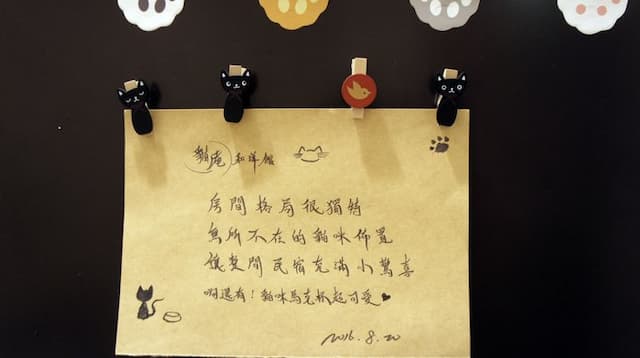 貓庵 和洋館
房間格局很獨特
無所不在的貓咪佈置
讓整間民宿充滿小驚喜
啊還有！貓咪馬克杯超可愛
2016.8.20